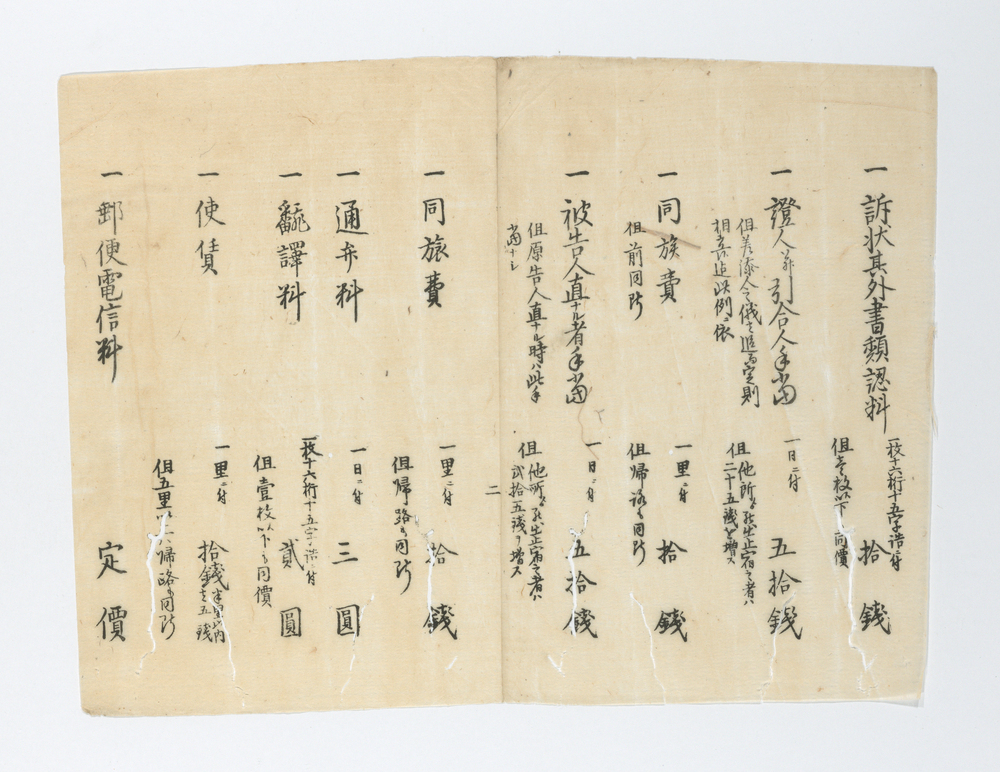 一 訴状其外書類認料
一枚十六桁十五字詰ニ付
拾錢
但壱枚以下同價
一 證人并引合人手當
一日ニ付
五拾錢
但差添人之儀も追而定則
相立候迄此例ニ依
但他所ゟ罷出止宿之者ハ
二十五錢を増ス
一 同旅費
一里ニ付
拾錢
但前同断
但帰路も同断
一 被告人直ナル者手當
一日ニ付
五拾錢
但原告人直ナル時ハ此手
當ナシ
但他所ゟ罷出止宿之者ハ
弐拾五錢ヲ増ス
二
一 同旅費
一里ニ付
拾錢
但帰路も同断
一 通弁料
一日ニ付
三圓
一 飜譯料
一枚十六桁十五字詰ニ付
貳圓
但壹枚以下も同價
一 使賃
一里ニ付
拾錢
半里以内
も五錢
但五里以上ハ帰路も同断
一 郵便電信料
定價